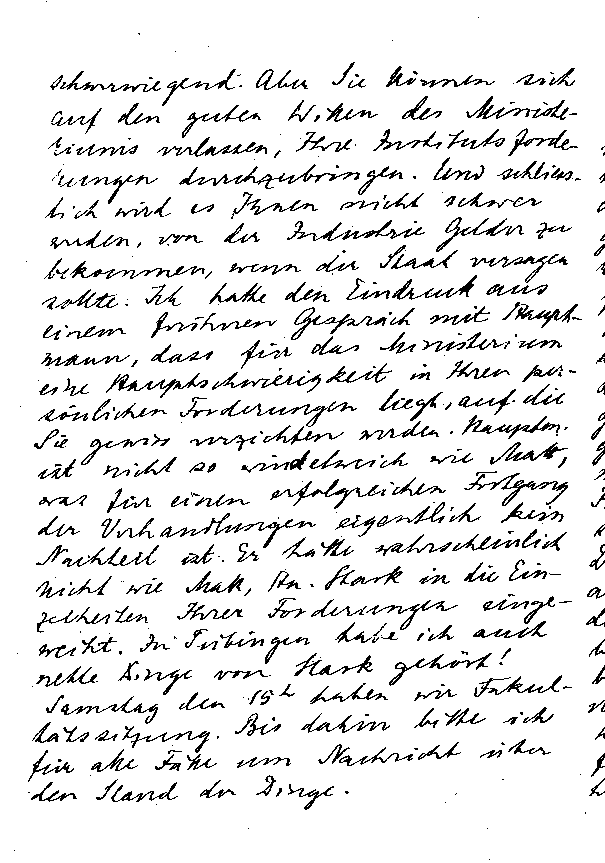 schwerwiegend. Aber Sie können sich
auf den guten Willen des Ministe-
riums verlassen, Ihre Institutsforde-
rungen durchzubringen. Und schliess-
lich wird es Ihnen nicht schwer
werden, von der Industrie Gelder zu
bekommen, wenn der Staat versagen
sollte. Ich hatte den Eindruck aus
einem früheren Gespräch mit Haupt-
mann, dass für das Ministerium
eine Hauptschwierigkeit in Ihren per-
sönlichen Forderungen liegt, auf die
Sie gewiss verzichten werden. Hauptm.
ist nicht so windelweich wie Matt,
was für einen erfolgreichen Fortgang
der Verhandlungen eigentlich kein
Nachteil ist. Er hätte wahrscheinlich
nicht wie Matt, Hn. Stark in die Ein-
zelheiten Ihrer Forderungen einge-
weiht. In Tübingen habe ich auch
nette Dinge von Stark gehört!
Samstag den 15t haben wir Fakul-
tätssitzung. Bis dahin bitte ich
für alle Fälle um Nachricht über
den Stand der Dinge.